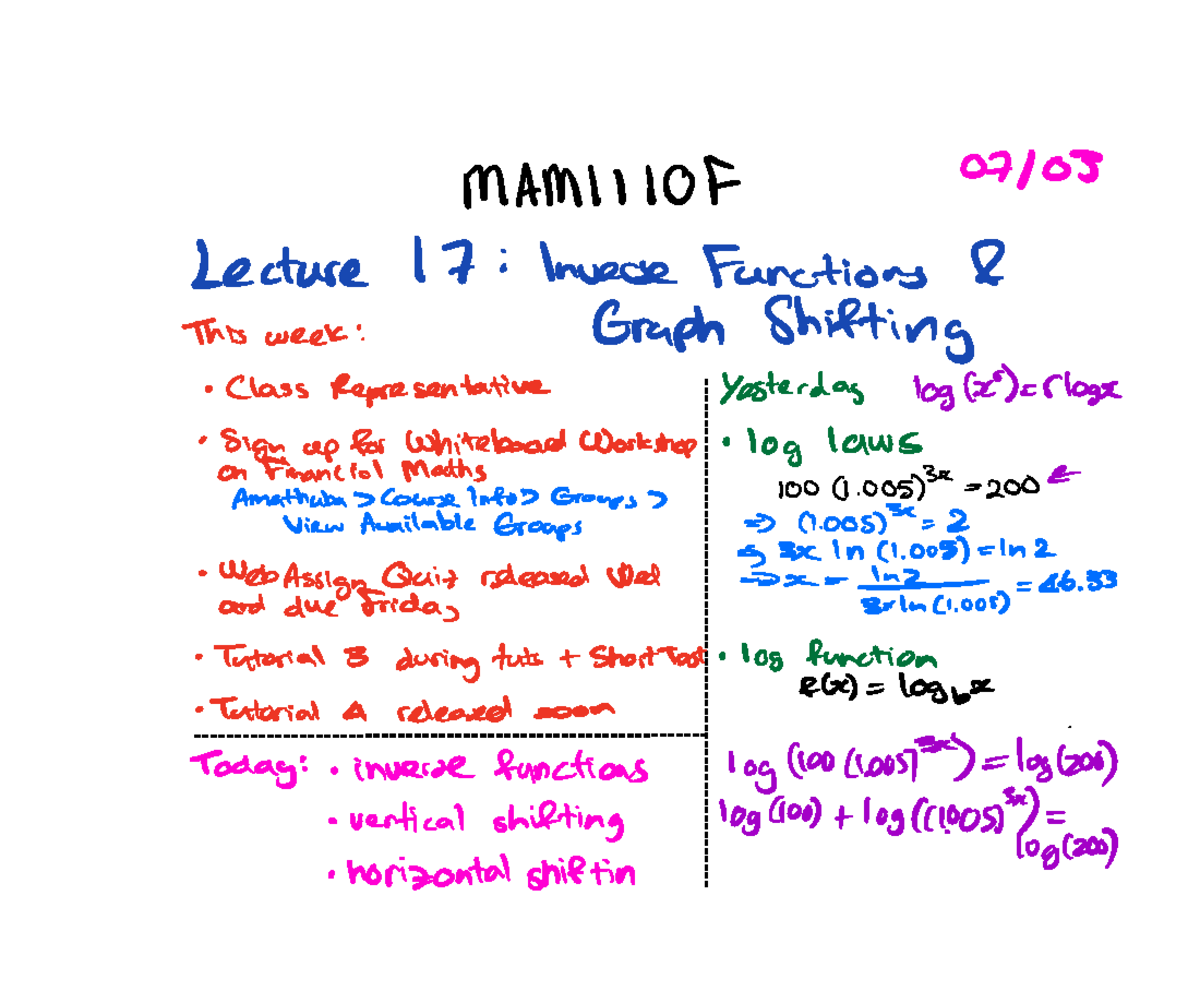 MAM1110F
07/03
Lecture 17: Inverse Functions &
Graph Shifting
This week:
• Class Representative
• Sign up for Whiteboard Workshop
on Financial Maths
Amathuba > Course Info > Groups >
View Available Groups
• WebAssign Quiz released Wed
and due Friday
• Tutorial 3 during tuts + Short Test
• Tutorial 4 released soon
Today: • inverse functions
• vertical shifting
• horizontal shiftin
Yesterday log(x^r) = r log x
• log laws
100 (1.005)^{3x} = 200 ←
⇒ (1.005)^{3x} = 2
⇒ 3x ln (1.005) = ln 2
⇒ x = ln 2 / 3x ln (1.005) = 46.33
• log function
f(x) = log_b x
log (100 (1.005)^{3x}) = log (200)
log (100) + log ((1.005)^{3x}) =
log (200)